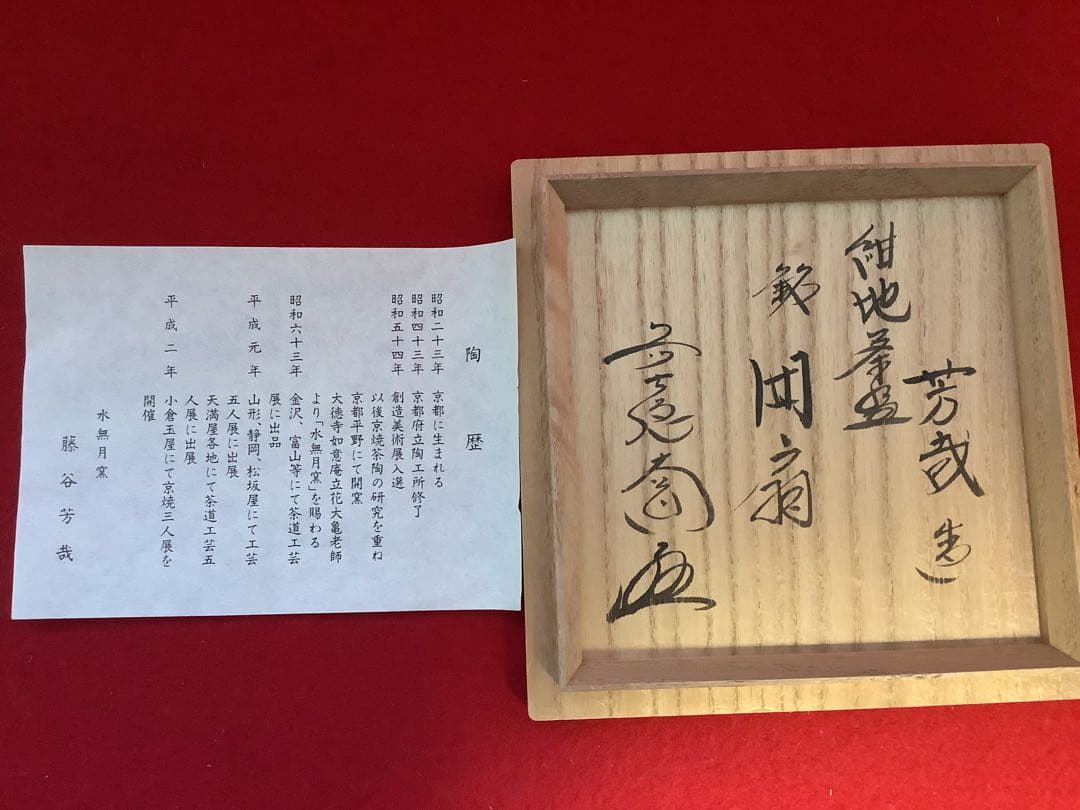 陶歴
昭和二十三年 京都に生まれる
昭和四十三年 京都府立陶工所修了
昭和五十四年 創造美術展入選
以後京焼茶陶の研究を重ね
京都平野にて開窯
大徳寺如意庵立花大亀老師
より「水無月窯」を賜わる
昭和六十三年 金沢、富山等にて茶道工芸
展に出品
平成元年 山形、静岡、松坂屋にて工芸
五人展に出展
天満屋各地にて茶道工芸五
人展に出展
平成二年 小倉玉屋にて京焼三人展を
開催
水無月窯
藤谷芳哉
芳哉造
紺地茶盌
銘 開扇